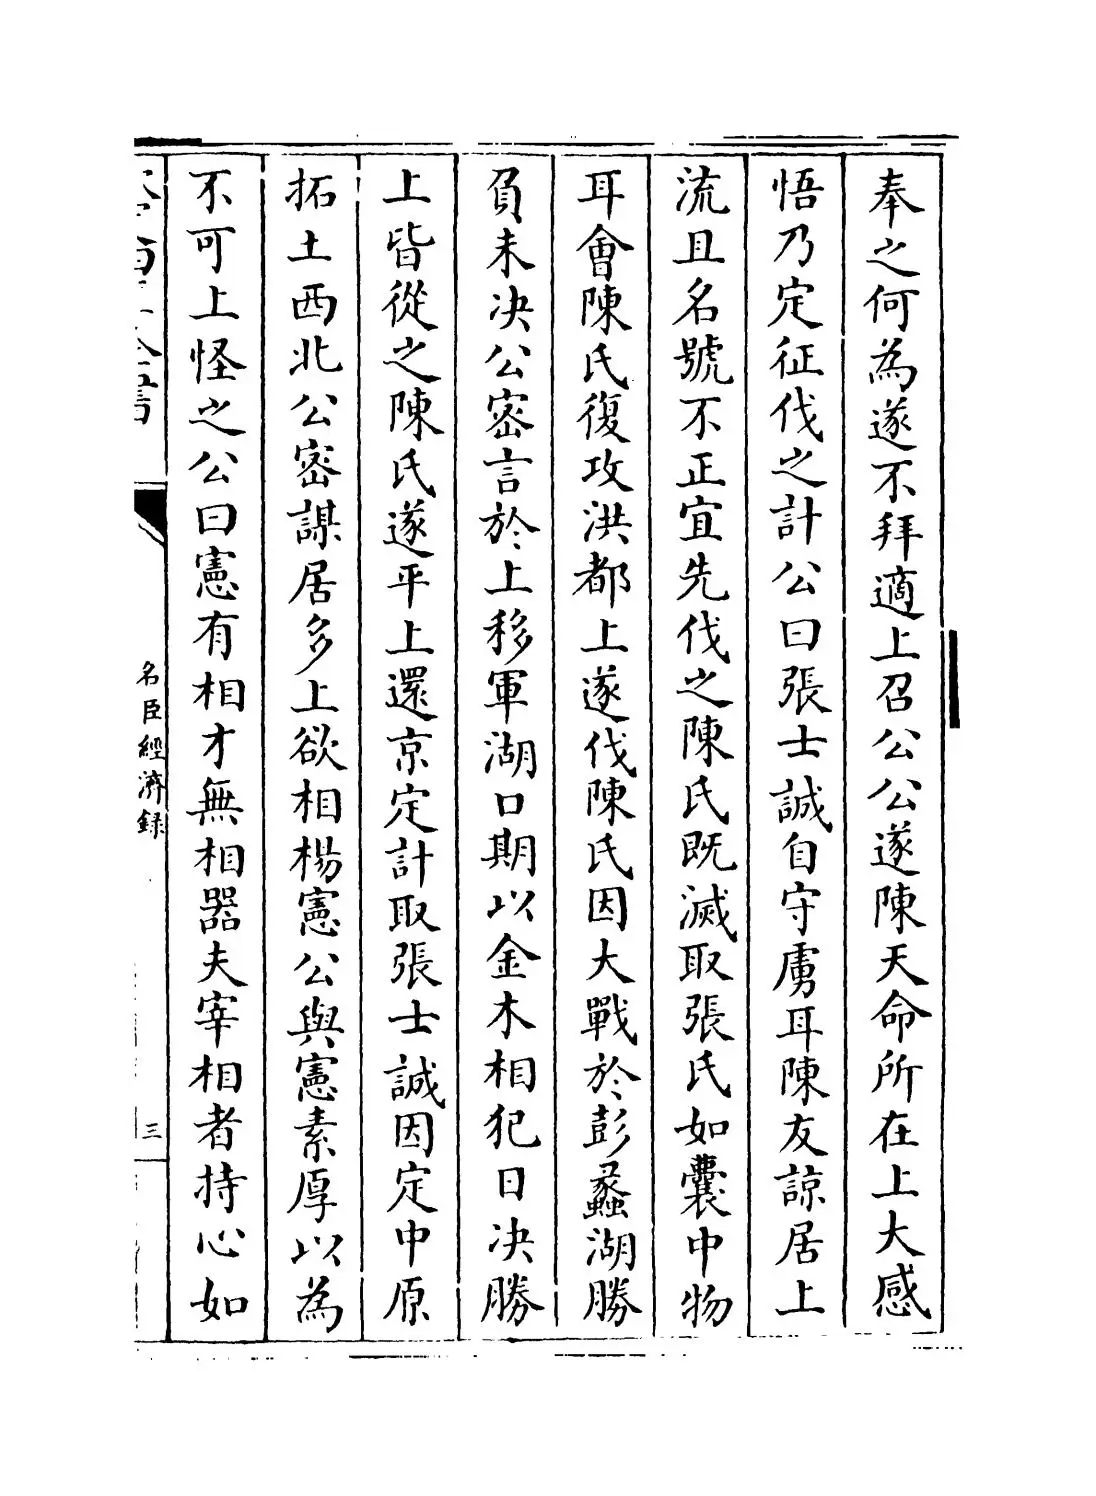 奉之何為遂不拜適上召公公遂陳天命所在上大感
悟乃定征伐之計公曰張士誠自守虜耳陳友諒居上
流且名號不正宜先伐之陳氏既滅取張氏如囊中物
耳會陳氏復攻洪都上遂伐陳氏因大戰於彭蠡湖勝
負未决公密言於上移軍湖口期以金木相犯日决勝
上皆從之陳氏遂平上還京定計取張士誠因定中原
拓土西北公密謀居多上欲相楊憲公與憲素厚以為
不可上怪之公曰憲有相才無相器夫宰相者持心如
名臣經濟録
三